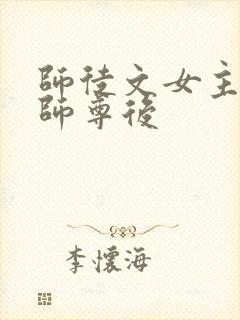 師徒文女主
師尊後
李懷海